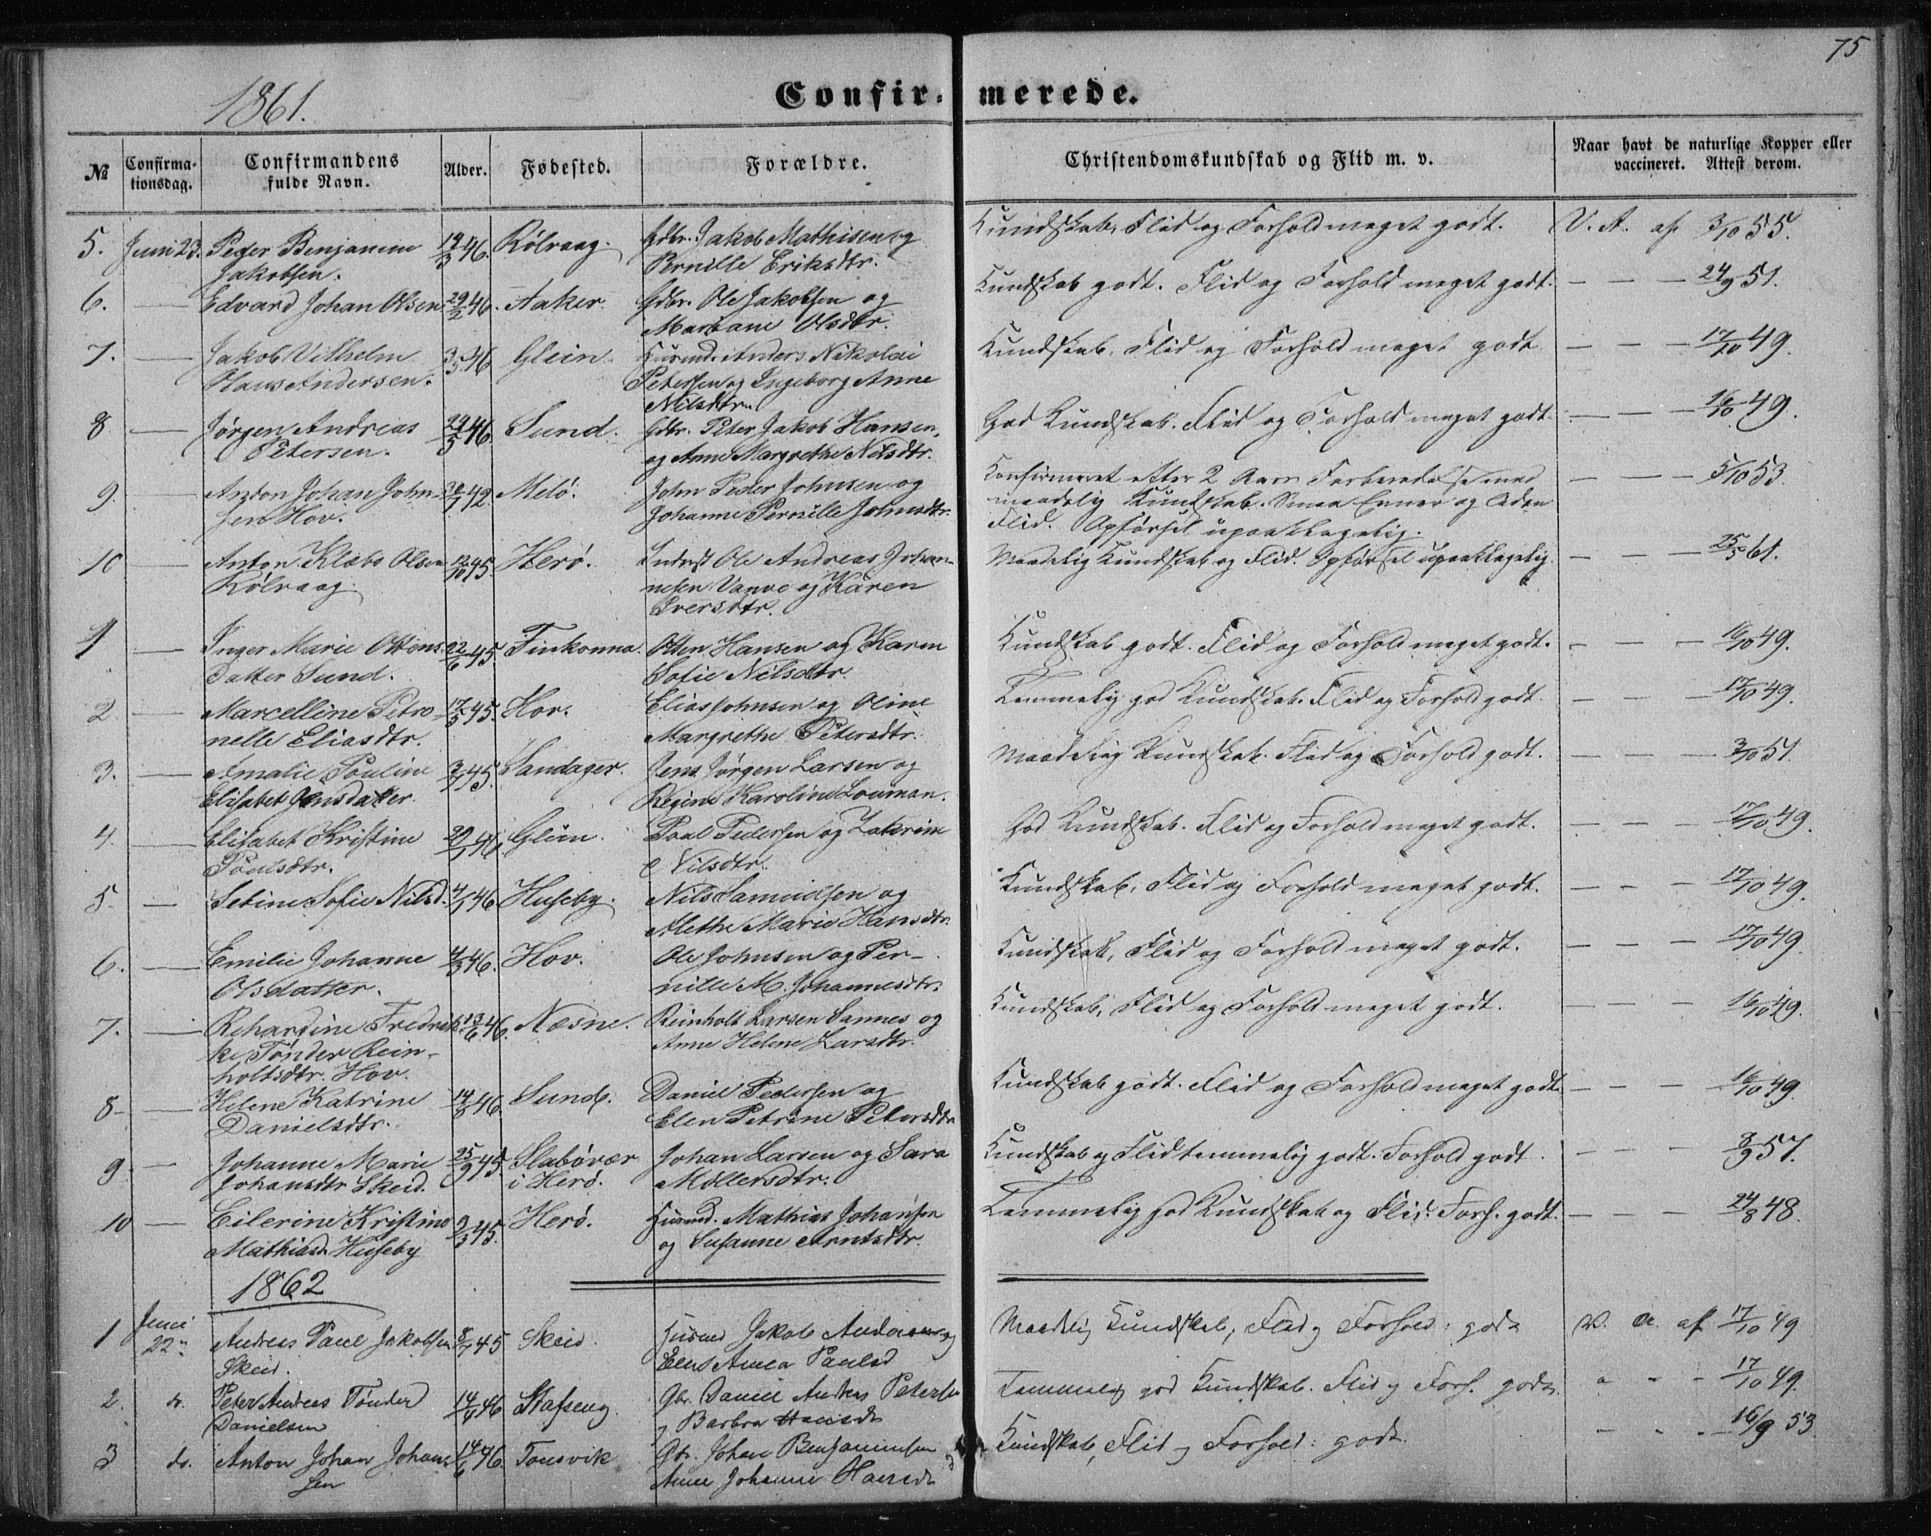 75
1861.
Confirmerede.
№ Confirmationsdag. Confirmandens fulde Navn. Alder. Fødested. Forældre. Christendomskundskab og Flid m. v. Naar havt de naturlige Kopper eller vaccineret. Attest derom.
5. Juni 23. Peder Benjamin 19/3 46. Kölraag. Gdbr. Jakob Mathisen og Kundskab, Flid og Forhold meget godt. V. A. af 3/10 55.
Jakobsen. Pernille Eriksdtr.
6. — Edvard Johan Olsen 29/2 46. Aaker. Gdbr. Ole Jakobsen og Kundskab godt. Flid og Forhold meget godt. — — — 24/9 51.
Mariane Olsdtr.
7. — Jakob Vilhelm 3/5 46. Glein. Husmd. Anders Nikolai Kundskab, Flid og Forhold meget godt — — — 17/10 49.
Hans Andersen. Petersen og Ingeborg Anne
Nilsdtr.
8 — Jørgen Andreas 24/5 46. Sund. Gdbr. Peter Jakob Hansen, God Kundskab. Flid og Forhold meget godt. — — — 16/10 49.
Petersen. og Anne Margrethe Nilsdtr.
9. — Anton Johan John- 30/7 42. Melö. John Peder Johnsen og Konfirmeret efter 2 Aars Forberedelse med — — — 5/10 53.
sen Hov. Johanne Pernille Johnsdtr. maadelig Kundskab. Smaa Evner og liden
Flid. Opførsel upaaklagelig.
10 — Anton Klæbo Olsen 12/10 45. Herö. Inderst Ole Andreas Johan- Maadelig Kundskab og Flid. Opførsel upaaklagelig. — — — 25/5 61.
Kölraag. nesen Vanve og Karen
Iversdtr.
1 — Inger Marie Ottens 22/6 45. Finkonna. Otten Hansen og Karen Kundskab godt. Flid og Forhold meget godt. — — — 16/10 49.
Datter Sund. Sofie Nilsdtr.
2. — Marcelline Petro- 17/5 45. Hov. Elias Johnsen og Oline Temmelig god Kundskab. Flid og Forhold godt. — — — 17/10 49.
nelle Eliasdtr. Margrethe Petersdtr.
3. — Amalie Pouline 3/7 45. Sandager. Jens Jørgen Larsen og Maadelig Kundskab. Flid og Forhold godt. — — — 3/10 51.
Elisabet Jensdatter. Regine Karoline Louman.
4. — Elisabet Kristine 29/1 46. Glein. Paal Pedersen og Zakrine God Kundskab. Flid og Forhold meget godt. — — — 17/10 49.
Poulsdtr. Nilsdtr.
5. — Sebine Sofie Nilsd. 4/1 46. Huseby. Nils Samuelsen og Kundskab, Flid og Forhold meget godt. — — — 17/10 49.
Alethe Marie Hansdtr.
6. — Emilie Johanne 4/3 46. Hov. Ole Johnsen og Per- Kundskab, Flid og Forhold meget godt. — — — 17/10 49.
Olsdatter. nille M. Johannesdtr.
7. — Rehardine Fredrik- 13/6 46. Næsne. Reinholt Larsen Sannes og Kundskab, Flid og Forhold meget godt. 16/10 49.
ke Tønder Rein- Anne Helene Larsdtr.
holtsdtr. Hov.
8 — Helene Katrine 14/8 46. Sund. Daniel Pedersen og Kundskab godt. Flid og Forhold meget godt. — — — 16/10 49.
Danielsdtr. Elen Petrine Petersdtr.
9 — Johanne Marie 25/9 45. Slabövær Johan Larsen og Sara Kundskab og Flid temmelig godt. Forhold godt. — — — 8/9 57.
Johansdtr. Skeid. i Herö. Möllersdtr.
10 — Eilerine Kristine 9/3 45. Herö. Husmd. Mathias Johansen Temmelig god Kundskab og Flid. Forh. godt. — — — 24/8 48.
Mathiasd. Huseby og Susanne Arntsdtr.
1862
1 Juni 22 Andreas Paul Jakobsen 8/7 45 Skeid. Husmd Jakob Andersen og Maadelig Kundskab, Flid og Forhold: godt V. a. af 17/10 49
Skeid. Anna Paulsd
2. do. Peter Andreas Tønder 14/4 46 Stafseng. Gbr. Daniel Andreas Petersen Temmelig god Kundskab. Flid og Forh. godt. 17/10 49.
Danielsen og Barbra Hansd
3 do. Anton Johan Johan- 14/6 46. Tonsvik Gbr. Johan Benjaminsen Kundskab, Flid og Forhold: godt. 16/9 53.
sen Anne Johanne Hansd